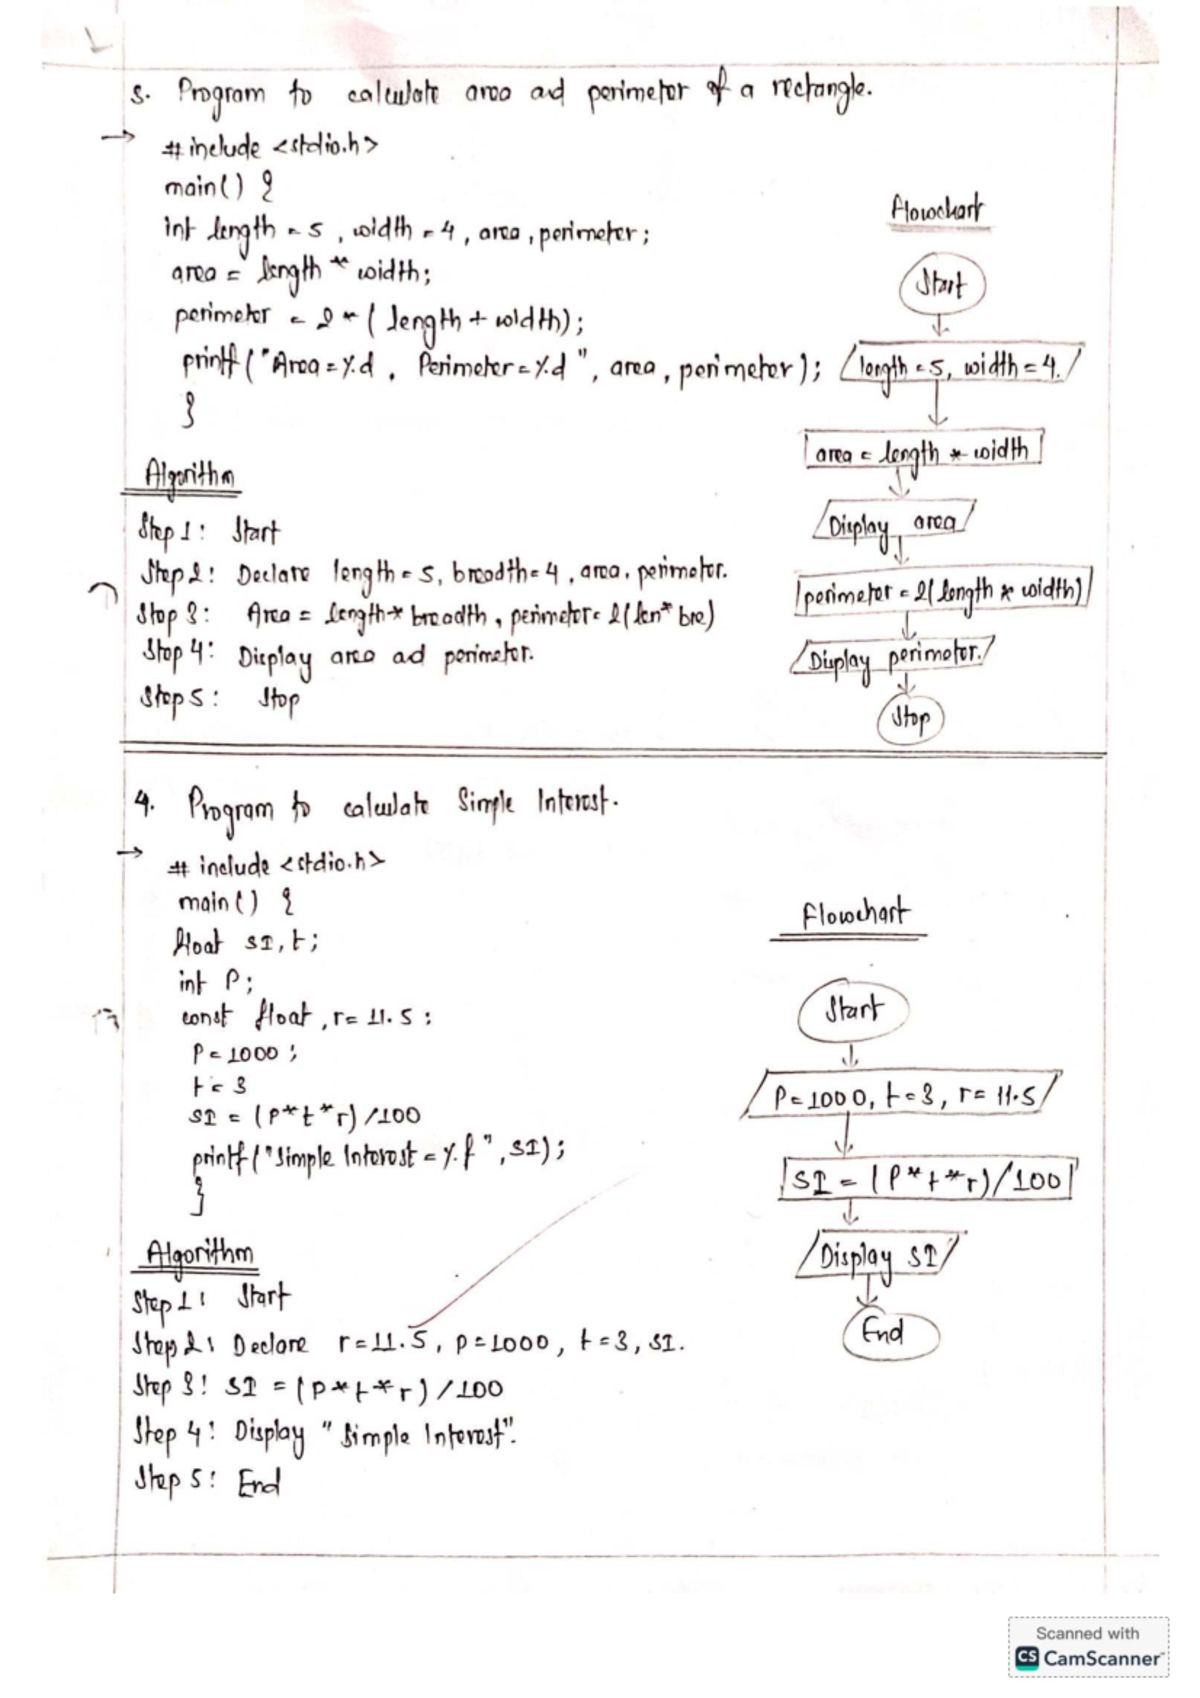 3. Program to calculate area ad perimeter of a rectangle.
→ #include <stdio.h>
main() {
int length = 5, width = 4, area, perimeter;
area = length * width;
perimeter = 2 * (length + width);
printf("Area = %d, Perimeter = %d", area, perimeter);
}
Flowchart
Start
length = 5, width = 4.
area = length * width
Display area
perimeter = 2(length * width)
Display perimeter.
Stop
Algorithm
Step 1: Start
Step 2: Declare length = 5, breadth = 4, area, perimeter.
Step 3: Area = length * breadth, perimeter = 2(len * bre)
Step 4: Display area ad perimeter.
Step 5: Stop
4. Program to calculate Simple Interest.
→ # include <stdio.h>
main() {
float SI, t;
int P;
const float, r = 11.5;
P = 1000;
t = 3
SI = (P*t*r)/100
printf("Simple Interest = %f", SI);
}
Flowchart
Start
P = 1000, t = 3, r = 11.5
SI = (P*t*r)/100
Display SI
End
Algorithm
Step 1: Start
Step 2: Declare r = 11.5, p = 1000, t = 3, SI.
Step 3: SI = (p*t*r)/100
Step 4: Display "Simple Interest".
Step 5: End
Scanned with
CS CamScanner